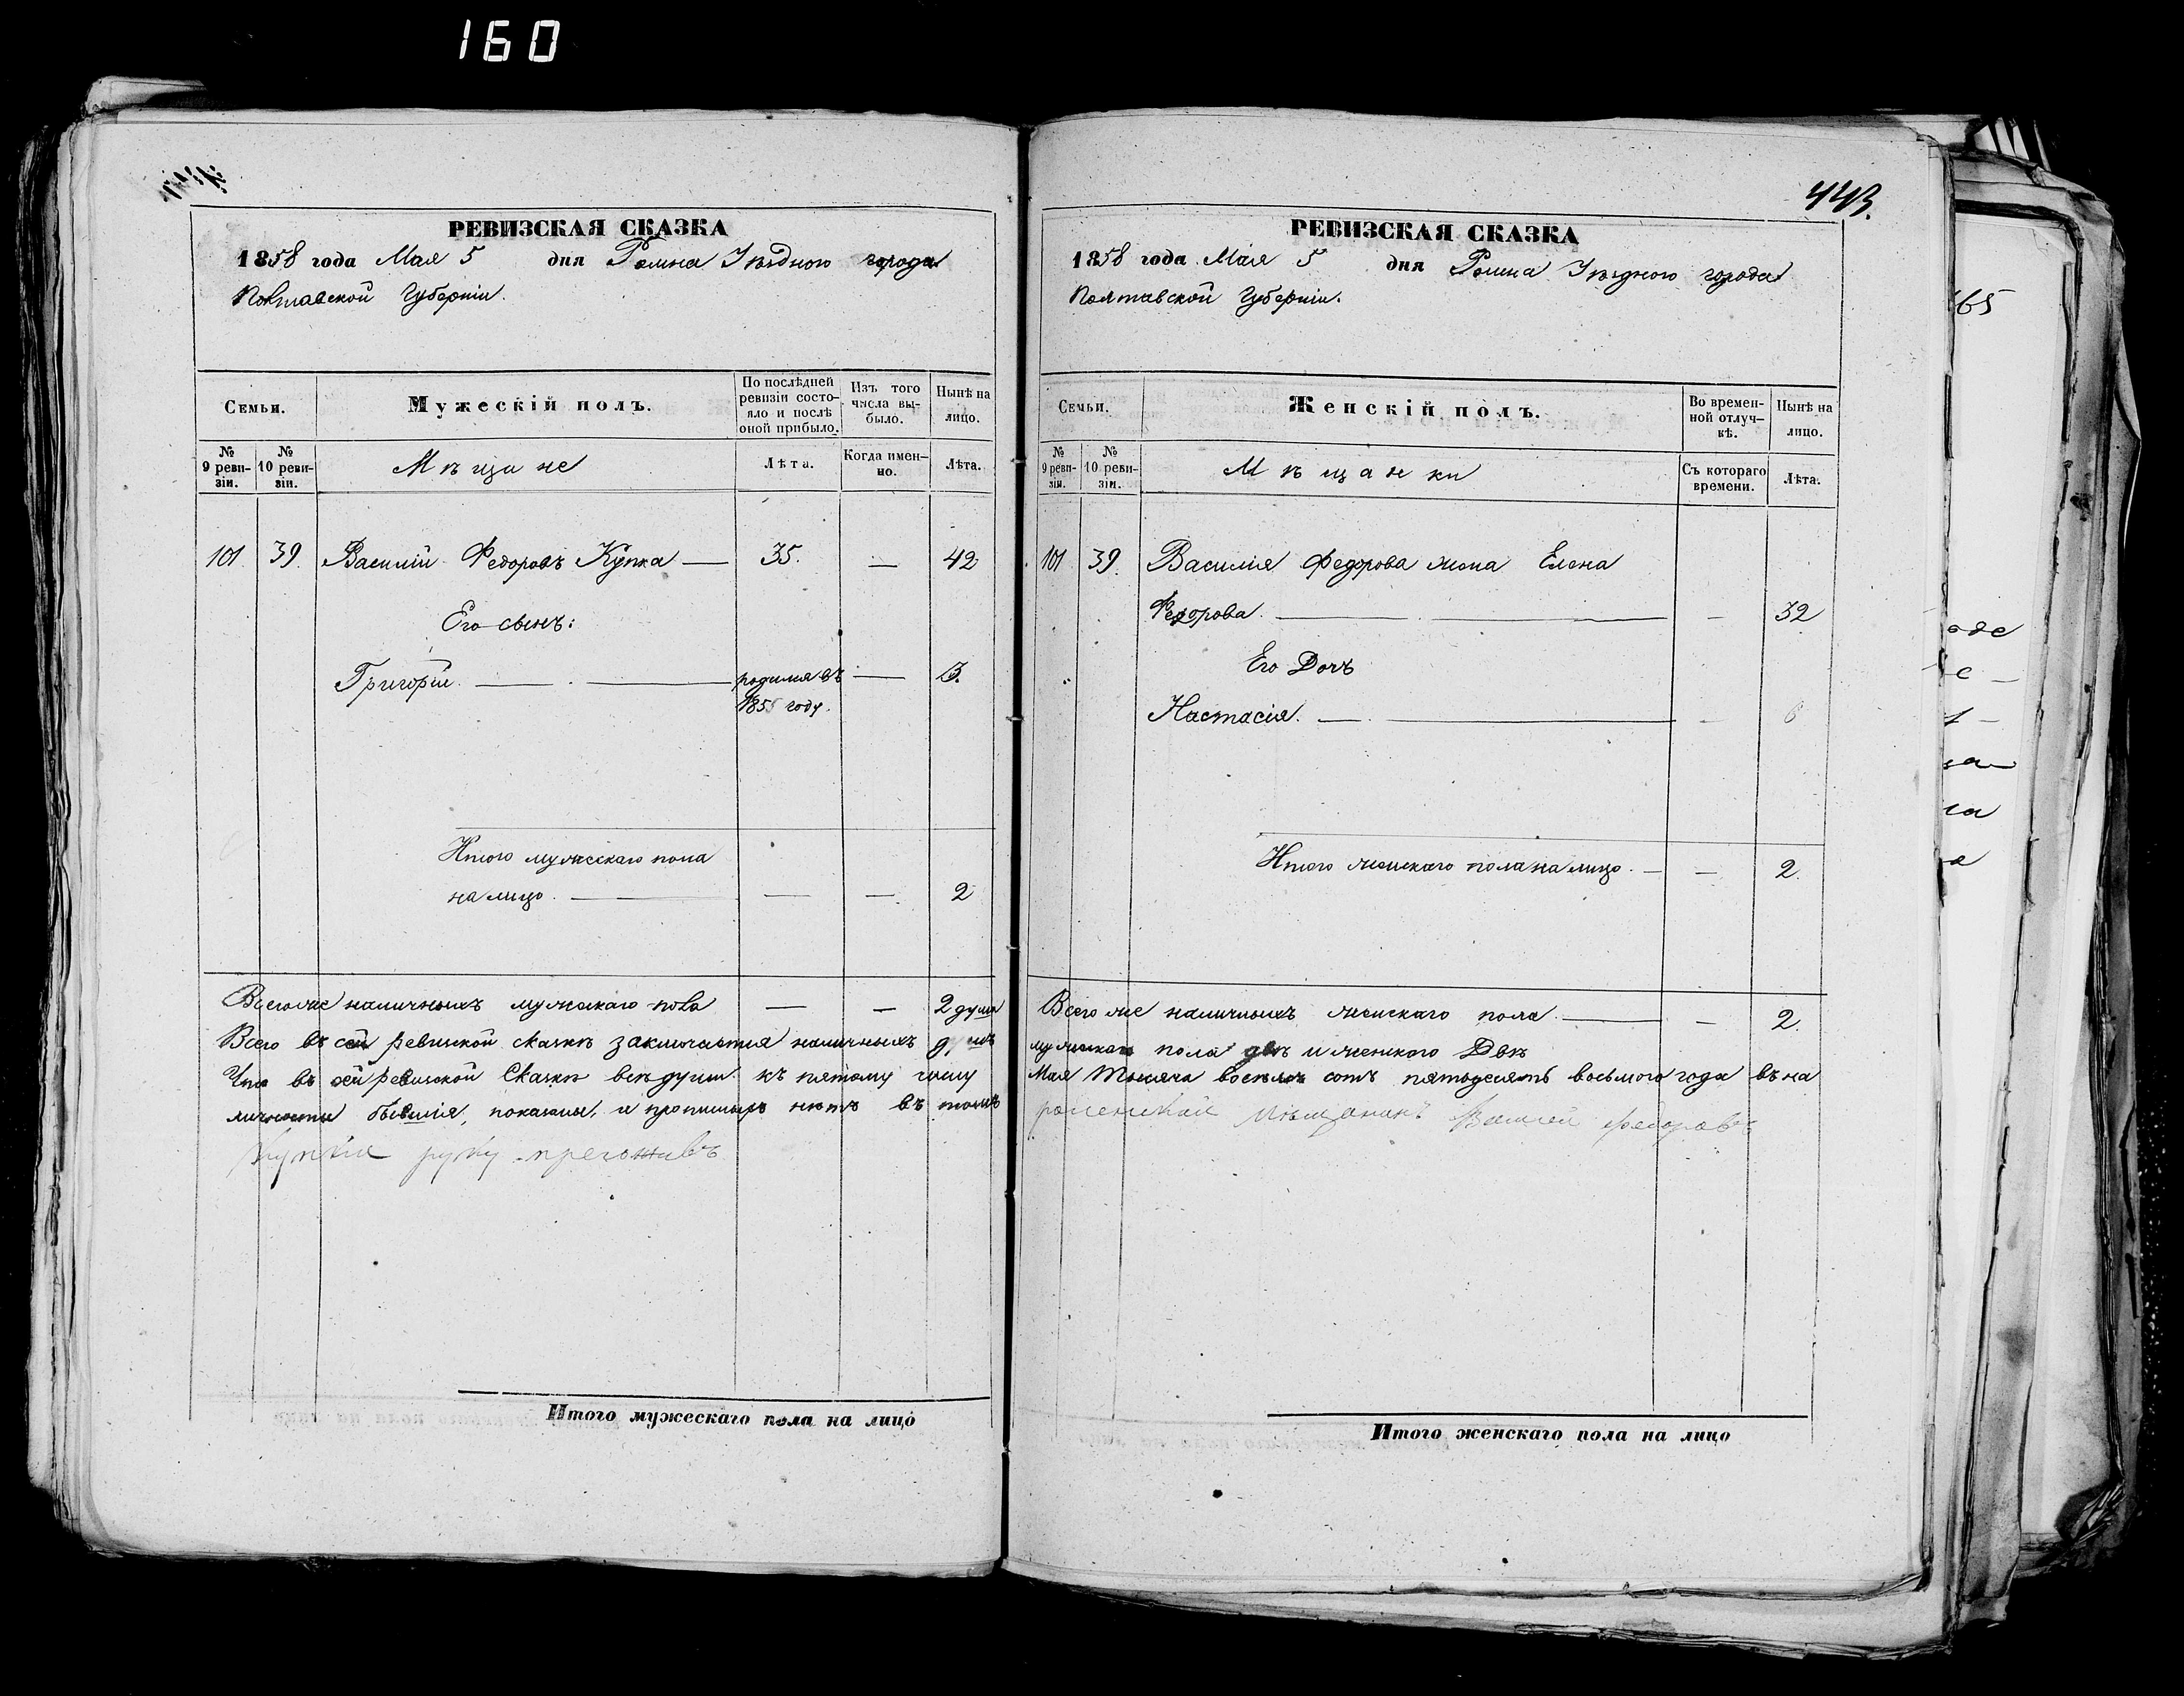 160
РЕВИЗСКАЯ СКАЗКА
1858 года Мая 5 дня Ромна Уѣздного города
Полтавской Губерніи.
Семьи.
Мужескій полъ.
По послѣдней ревизіи состояло и послѣ оной прибыло.
Изъ того числа выбыло.
Нынѣ на лицо.
№ 9 ревизіи.
№ 10 ревизіи.
Мѣщане
Лѣта.
Когда именно.
Лѣта.
101 39. Василій Федоровъ Купка — 35. — 42
Его сынъ:
Григорій. — родился въ — 3.
1855 году.
Итого мужескаго пола
на лицо. — — — 2
Всего же наличныхъ мужескаго пола — — 2 души
Всего въ сей ревизской сказкѣ заключается наличныхъ душъ
Что въ сей ревизской Сказкѣ всѣ души къ пятому числу
личности бывшія, показаны, и прописныхъ нѣтъ въ томъ
руку приложивъ
Итого мужескаго пола на лицо
443.
РЕВИЗСКАЯ СКАЗКА
1858 года Мая 5 дня Ромна Уѣздного города
Полтавской Губерніи.
Семьи.
Женскій полъ.
Во временной отлучкѣ.
Нынѣ на лицо.
№ 9 ревизіи.
№ 10 ревизіи.
Мѣщанки
Съ котораго времени.
Лѣта.
101 39. Василія Федорова жена Елена
Федорова. — — 32
Его Дочь
Настасія. — — 6
Итого женскаго пола на лицо. — — 2.
Всего же наличныхъ женскаго пола. — — 2.
мужскаго пола двѣ и женского Двѣ
Мая тысяча восемь сотъ пятьдесятъ восьмого года въ на
роменский мѣщанинъ Василей федоровъ
Итого женскаго пола на лицо
65